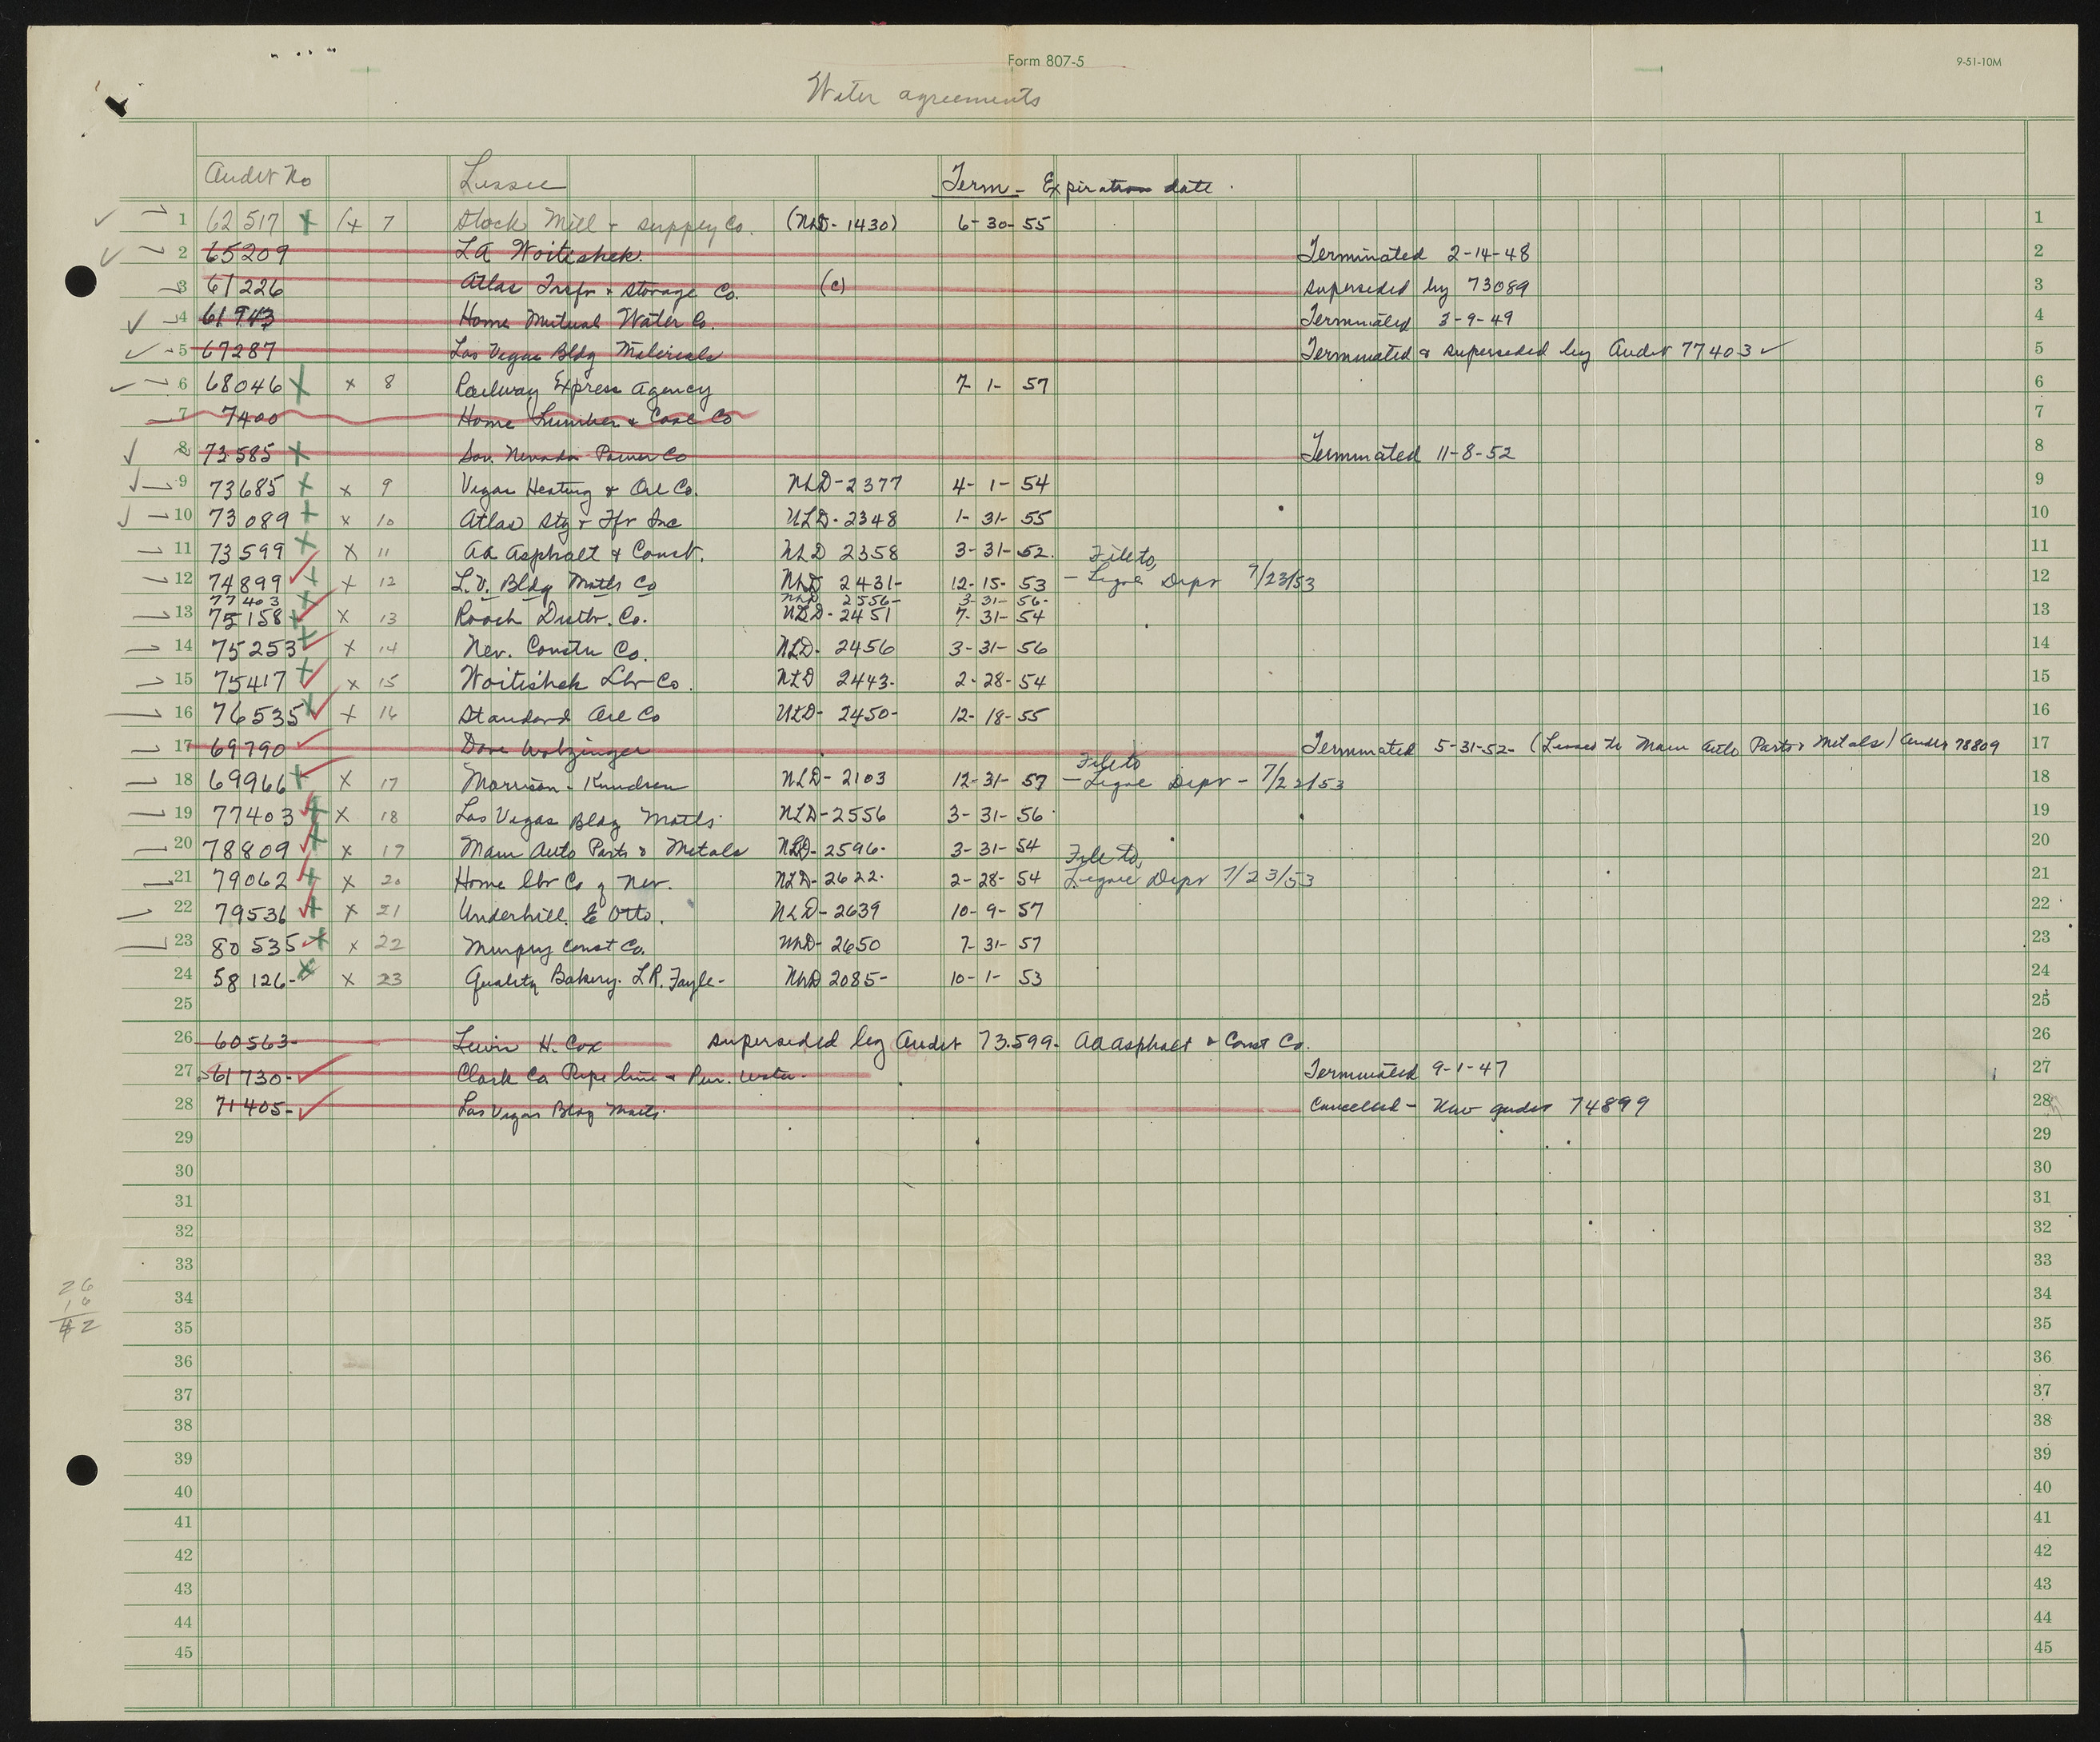 Form 807-5
9-51-10M
Water agreements
Audit No Lessee Term - Expiration date.
1 62517 x (x 7 Stock Mill + Supply Co. (NLD-1430) 6-30-55 1
2 65209 LA Woitishek. Terminated 2-14-48 2
3 61226 Atlas Trsfr & Storage Co. (c) superseded by 73089 3
4 61943 Home Mutual Water Co. Terminated 3-9-49 4
5 67287 Las Vegas Bldg Materials Terminated & superseded by Audit 77403 ✓ 5
6 68046 x x 8 Railway Express Agency 7-1-57 6
7 7400 Home Lumber & Coal Co 7
8 73585 x Sou. Nevada Power Co Terminated 11-8-52 8
9 73685 x x 9 Vegas Heating & Oil Co. NLD-2377 4-1-54 9
10 73089 + x 10 Atlas Stg & Tfr Inc NLD-2348 1-31-55 10
11 73599 x x 11 AA Asphalt & Const. NLD 2358 3-31-52. File to, 11
12 74899 ✓ + x 12 L.V. Bldg Matls Co NLD 2431- 12-15-53 - Legal Dept 7/23/53 12
77403 x NLD 2556- 3-31-56-
13 75158 ✓ x 13 Roach Distbr. Co. NLD-2451 7-31-54 13
14 75253 ✓ x 14 Nev. Constn Co. NLD-2456 3-31-56 14
15 75417 ✓ x 15 Woitishek Lbr Co. NLD 2443- 2-28-54 15
16 76535 ✓ x 16 Standard Oil Co NLD-2450- 12-18-55 16
17 69790 ✓ Dave Watzinger Terminated 5-31-52- (Leased to Main Auto Parts & Metals) Audit 78809 17
File to
18 69966 + x 17 Morrison-Knudsen NLD-2103 12-31-57 - Legal Dept - 7/23/53 18
19 77403 + x 18 Las Vegas Bldg Matls NLD-2556 3-31-56 19
20 78809 ✓ x 19 Main Auto Parts & Metals NLD-2596. 3-31-54 20
File to,
21 79062 + x 20 Home lbr Co of Nev. NLD-2622. 2-28-54 Legal Dept 7/23/53 21
22 79536 + x 21 Underhill & Otto. NLD-2639 10-9-57 22
23 80535 x x 22 Murphy Const Co. NLD-2650 7-31-57 23
24 58126- x x 23 Quality Bakery. LR. Fayle- NLD 2085- 10-1-53 24
25 25
26 60563- Lewis H. Cox superseded by Audit 73.599- AA Asphalt & Const Co. 26
27 61730- ✓ Clark Co Pipe line & Pur. Water- Terminated 9-1-47 27
28 71405- ✓ Las Vegas Bldg Matls. Cancelled - New Audit 74899 28
29 29
30 30
31 31
32 32
33 33
26
16
42
34 34
35 35
36 36
37 37
38 38
39 39
40 40
41 41
42 42
43 43
44 44
45 45